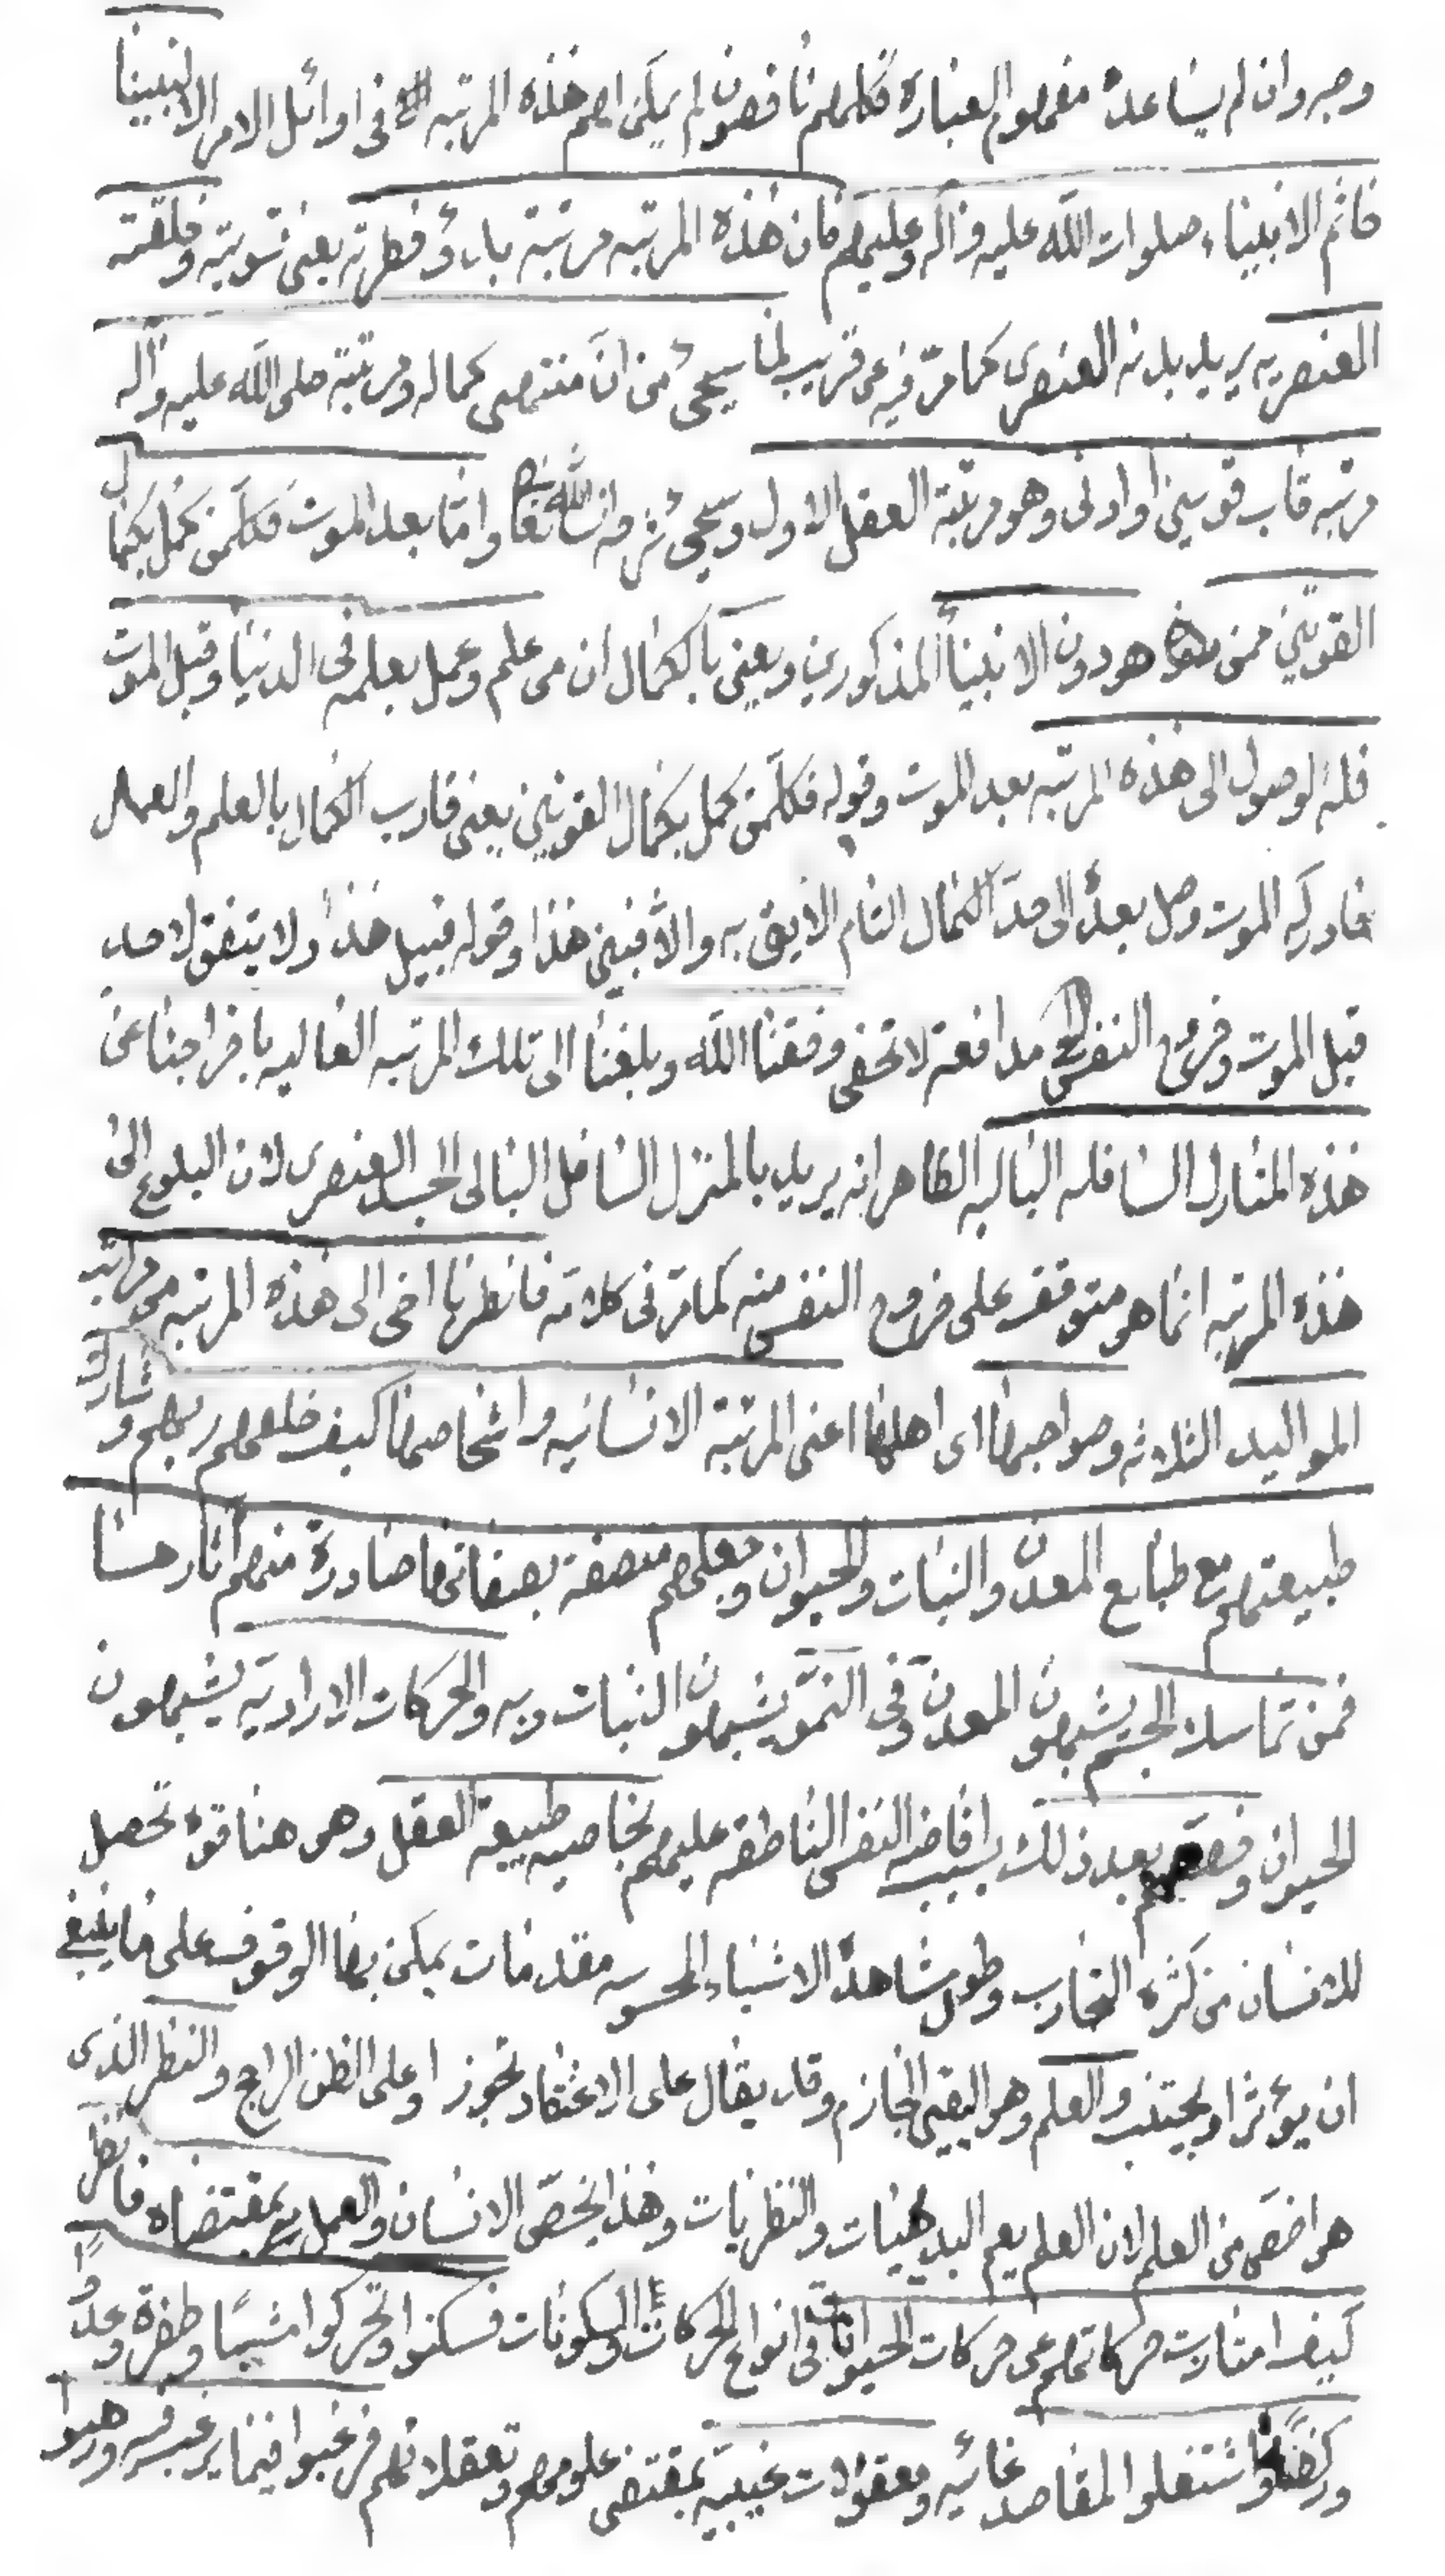 وجبر وان لم يساعده مفهوم العبارة فكلهم ناقصون لم يكن لهم هذه المرتبه في اوائل الامر الا لنبينا
خاتم الانبياء صلوات الله عليه واله وعليهم فان هذه المرتبه مرتبة بدؤ فطرته يعنى تسويته وخلقته
العنصريه يريد بدنه العنصرى كما مرّ فيه عن قريب لما سيجئ من انّ منتهى كماله ومرتبته صلى الله عليه واله
مرتبه قاب قوسين او ادنى وهو مرتبة العقل الاول وسيجئ شرحه انشاء الله تعا وامّا بعد الموت فكلّ من كمل بكمال
القوتين ممن هو دون الانبياء المذكورين ويعنى بالكمال ان من علم وعمل بعلمه فى الدنيا وقبل الموت
فله الوصول الى هذه المرتبه بعد الموت وقوله فكلّ من كمل بكمال القوتين يعنى قارب الكمال بالعلم والعمل
فادركه الموت وصل بعده الى حدّ الكمال التام الايق به والا فبين هذا وقوله قبيل هذا ولا يتفق لاحد
قبل الموت وخروج النفس الخ مدافعة لا تخفى وفقنا الله وبلغنا الى تلك المرتبه العاليه باخراجنا عن
هذه المنازل السافله الباليه الظاهر انه يريد بالمنزل السافل البالى الجسد العنصرى لان البلوغ الى
هذه المرتبه انما هو متوقف على خروج النفس منه كما مرّ فى كلامه فانظر يا اخى الى هذه المرتبه من مراتب
المواليد الثلاثه وصواحبها اى اهلها اعنى المرتبة الانسانيه واشخاصها كيف خلقهم ربهم وشارك
طبيعتهم مع طبايع المعدن والنبات والحيوان وجعلهم متصفة بصفاتها صادرة منهم آثارها
فمن تماسك الجسم يشبهون المعدن وفى النموّ يشبهون النبات وبه والحركات الاراديّه يشبهون
الحيوان وخصّهم بعد ذلك بسبب افاضه النفس الناطقه عليهم بخاصيه طبيعه العقل وهى هنا قوه تحصل
للانسان من كثره التجارب وطول مشاهدة الاشياء المحسوسه مقدمات يمكن بها الوقوف على ما ينبغى
ان يؤثر او يجتنب والعلم وهو اليقين الجازم وقد يقال على الاعتقاد تجوز او على الظن الراجح والنظر الذى
هو اخصّ من العلم لان العلم يعم البديهيات والنظريات وهذا يخصّ الانسان والعمل بمقتضاه فانظر
كيف امتازت حركاتهم عن حركات الحيوانات فى انواع الحركات والسكونات فسكنوا وتحركوا مشيًا وطفرة وعدوًا
وركضًا واشتغلوا لمقاصد غائيه ومعقولات غيبيّة بمقتضى علومهم وتعقلاتهم فرغبوا فيما يرغب فيه ورهبوا